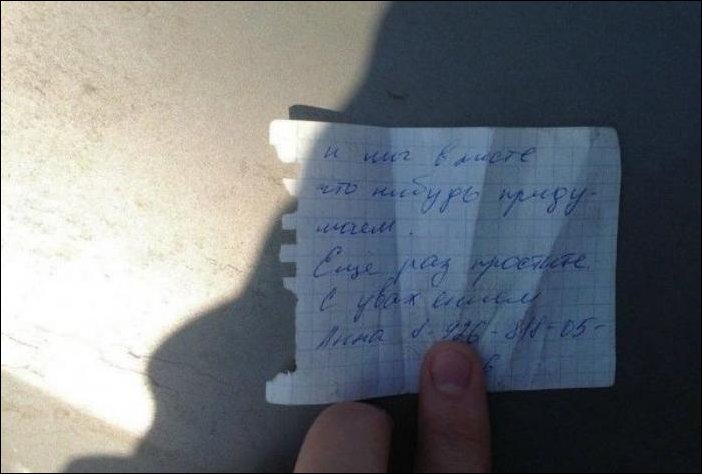 и мы вместе
что нибудь приду-
маем.
Еще раз простите.
С уважением
Анна 8-926-818-05-